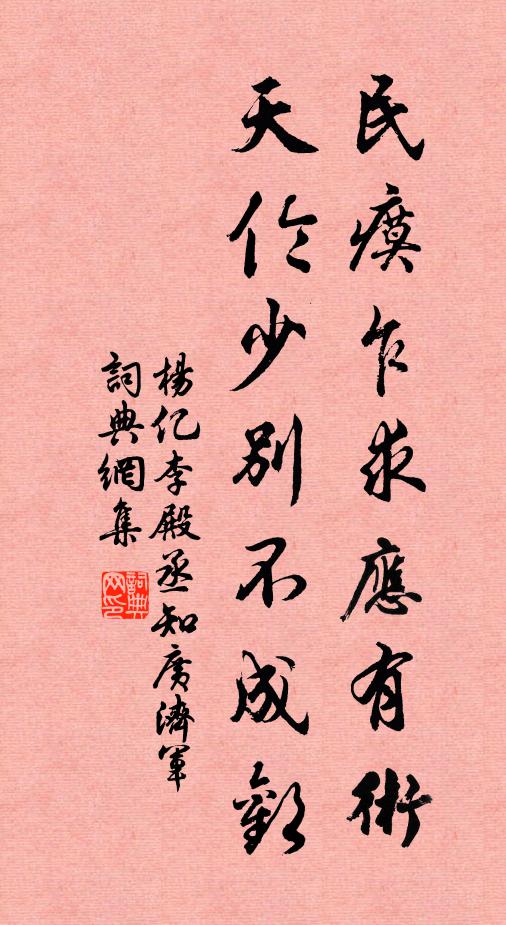 民瘼乍求應有術
天伦少別不成歡
楊亿李殿丞知广濟軍
詞典網集
詞典网印